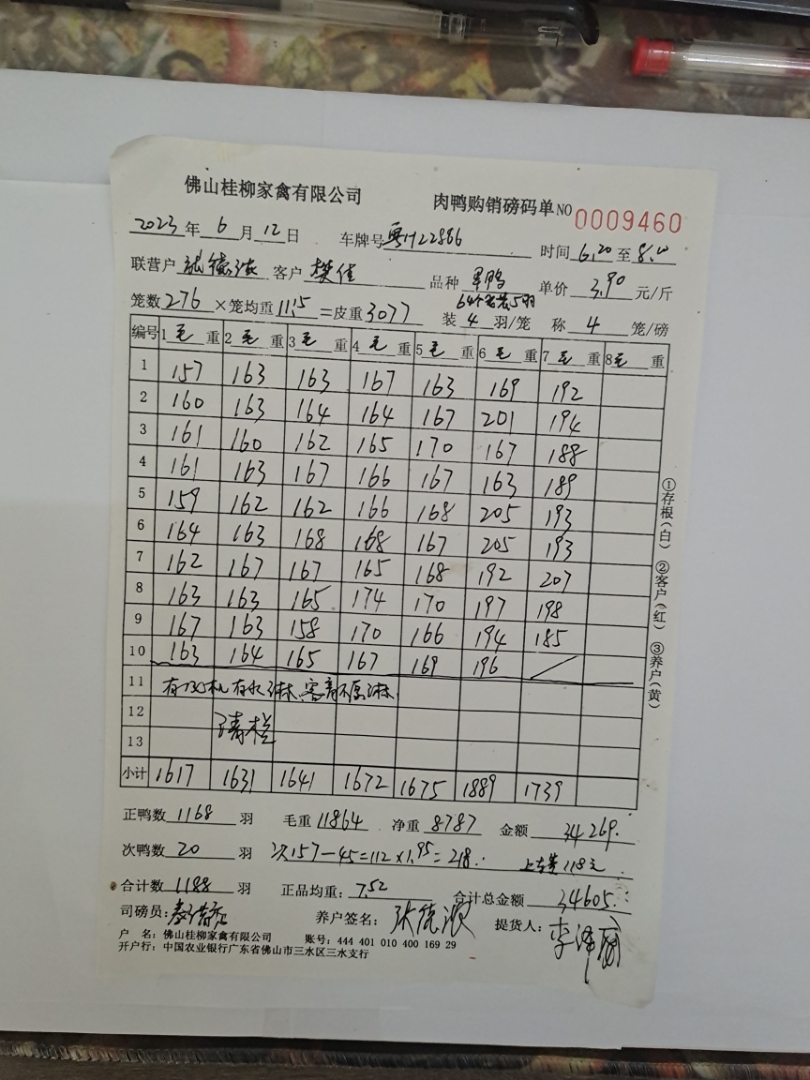 佛山桂柳家禽有限公司 肉鸭购销磅码单 NO 0009460
2023年 6 月 12 日 车牌号 粤H22886 时间 6.20 至 8.00
联营户 张德浓 客户 樊佳 品种 草鸭 单价 3.90 元/斤
64个笼装5羽
笼数 276 ×笼均重 11.15 =皮重 3077 装 4 羽/笼 称 4 笼/磅
编号 1毛重 2毛重 3毛重 4毛重 5毛重 6毛重 7毛重 8毛重
1 157 163 163 167 163 169 192
2 160 163 164 164 167 201 194
3 161 160 162 165 170 167 188
4 161 163 167 166 167 163 189
5 159 162 162 166 168 205 193
6 164 163 168 168 167 205 193
7 162 167 167 165 168 192 207
8 163 163 165 174 170 197 198
9 167 163 158 170 166 194 185
10 163 164 165 167 169 196 /
11 有水淋 客户不愿淋
12 清栏
13
小计 1617 1631 1641 1672 1675 1889 1739
正鸭数 1168 羽 毛重 11864 净重 8787 金额 34269.
次鸭数 20 羽 次157-45=112×1.95=218. 上车费118元
合计数 1188 羽 正品均重: 7.52 合计总金额 34605.
司磅员: 养户签名: 张德浓 提货人:
户 名: 佛山桂柳家禽有限公司 账号: 444 401 010 400 169 29
开户行: 中国农业银行广东省佛山市三水区三水支行
①存根(白) ②客户(红) ③养户(黄)